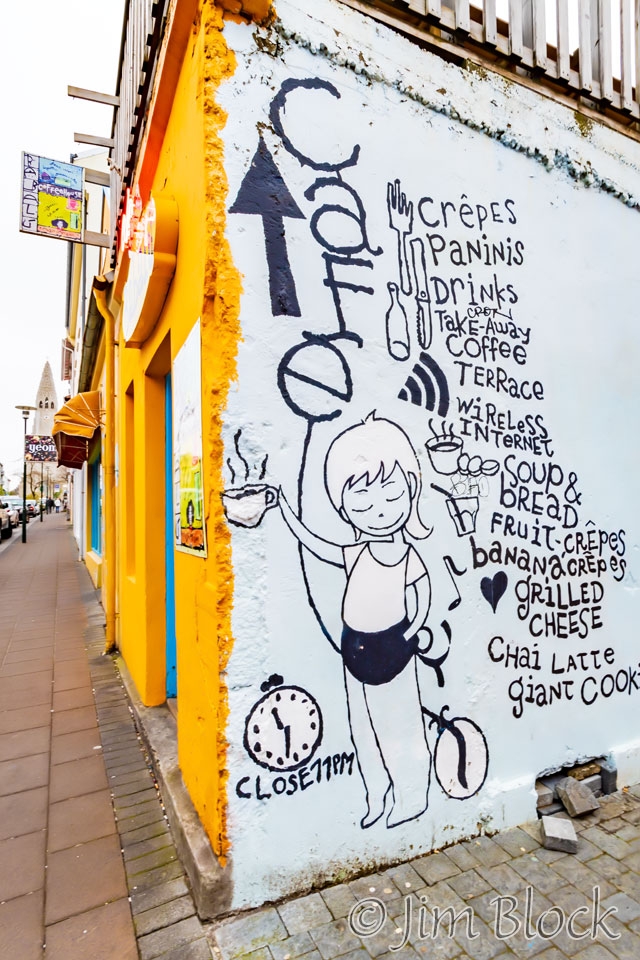 Café
CRÊPES
PANINIS
DRINKS
TAKE-AWAY
COFFEE
TERRACE
WIRELESS
INTERNET
SOUP &
BREAD
FRUIT-CRÊPES
bananacrêpes
gRILLED
CHEESE
CHAi LATTE
giANT COOKi
CLOSE 11PM
BABALÚ
COFFEEHOUSE
yeoman
© Jim Block